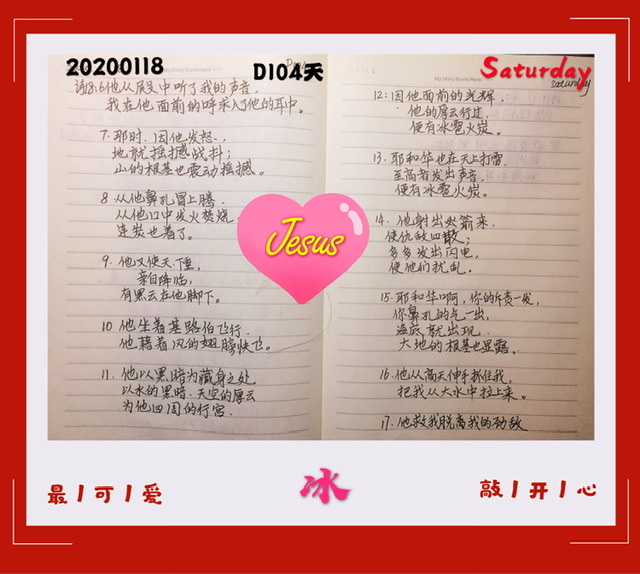 20200118
D104天
Saturday
My Story Starts Here
saturday
诗18:6他从殿中听了我的声音,
我在他面前的呼求入了他的耳中。
7. 那时,因他发怒、,
地就摇撼战抖;
山的根基也震动摇撼。
8 从他鼻孔冒上腾
从他口中发火焚烧
连炭也着了。
9. 他又使天下垂,
亲自降临,
有黑云在他脚下。
10 他坐着基路伯飞行
他藉着风的翅膀快飞。
11. 他以黑暗为藏身之处
以水的黑暗、天空的厚云
为他四围的行宫
Jesus
12:因他面前的光辉,
他的厚云行过
便有冰雹火炭。
13. 耶和华也在天上打雷
至高者发出声音
便有冰雹火炭。
14. 他射出箭来,
使仇敌四散;
多多发出闪电,
使他们扰乱。
15. 耶和华啊,你的斥责一发,
你鼻孔的气一出,
海底就出现
大地的根基也显露。
16. 他从高天伸手抓住我,
把我从大水中拉上来。
17. 他救我脱离我的劲敌
最丨可丨爱
冰
敲丨开丨心